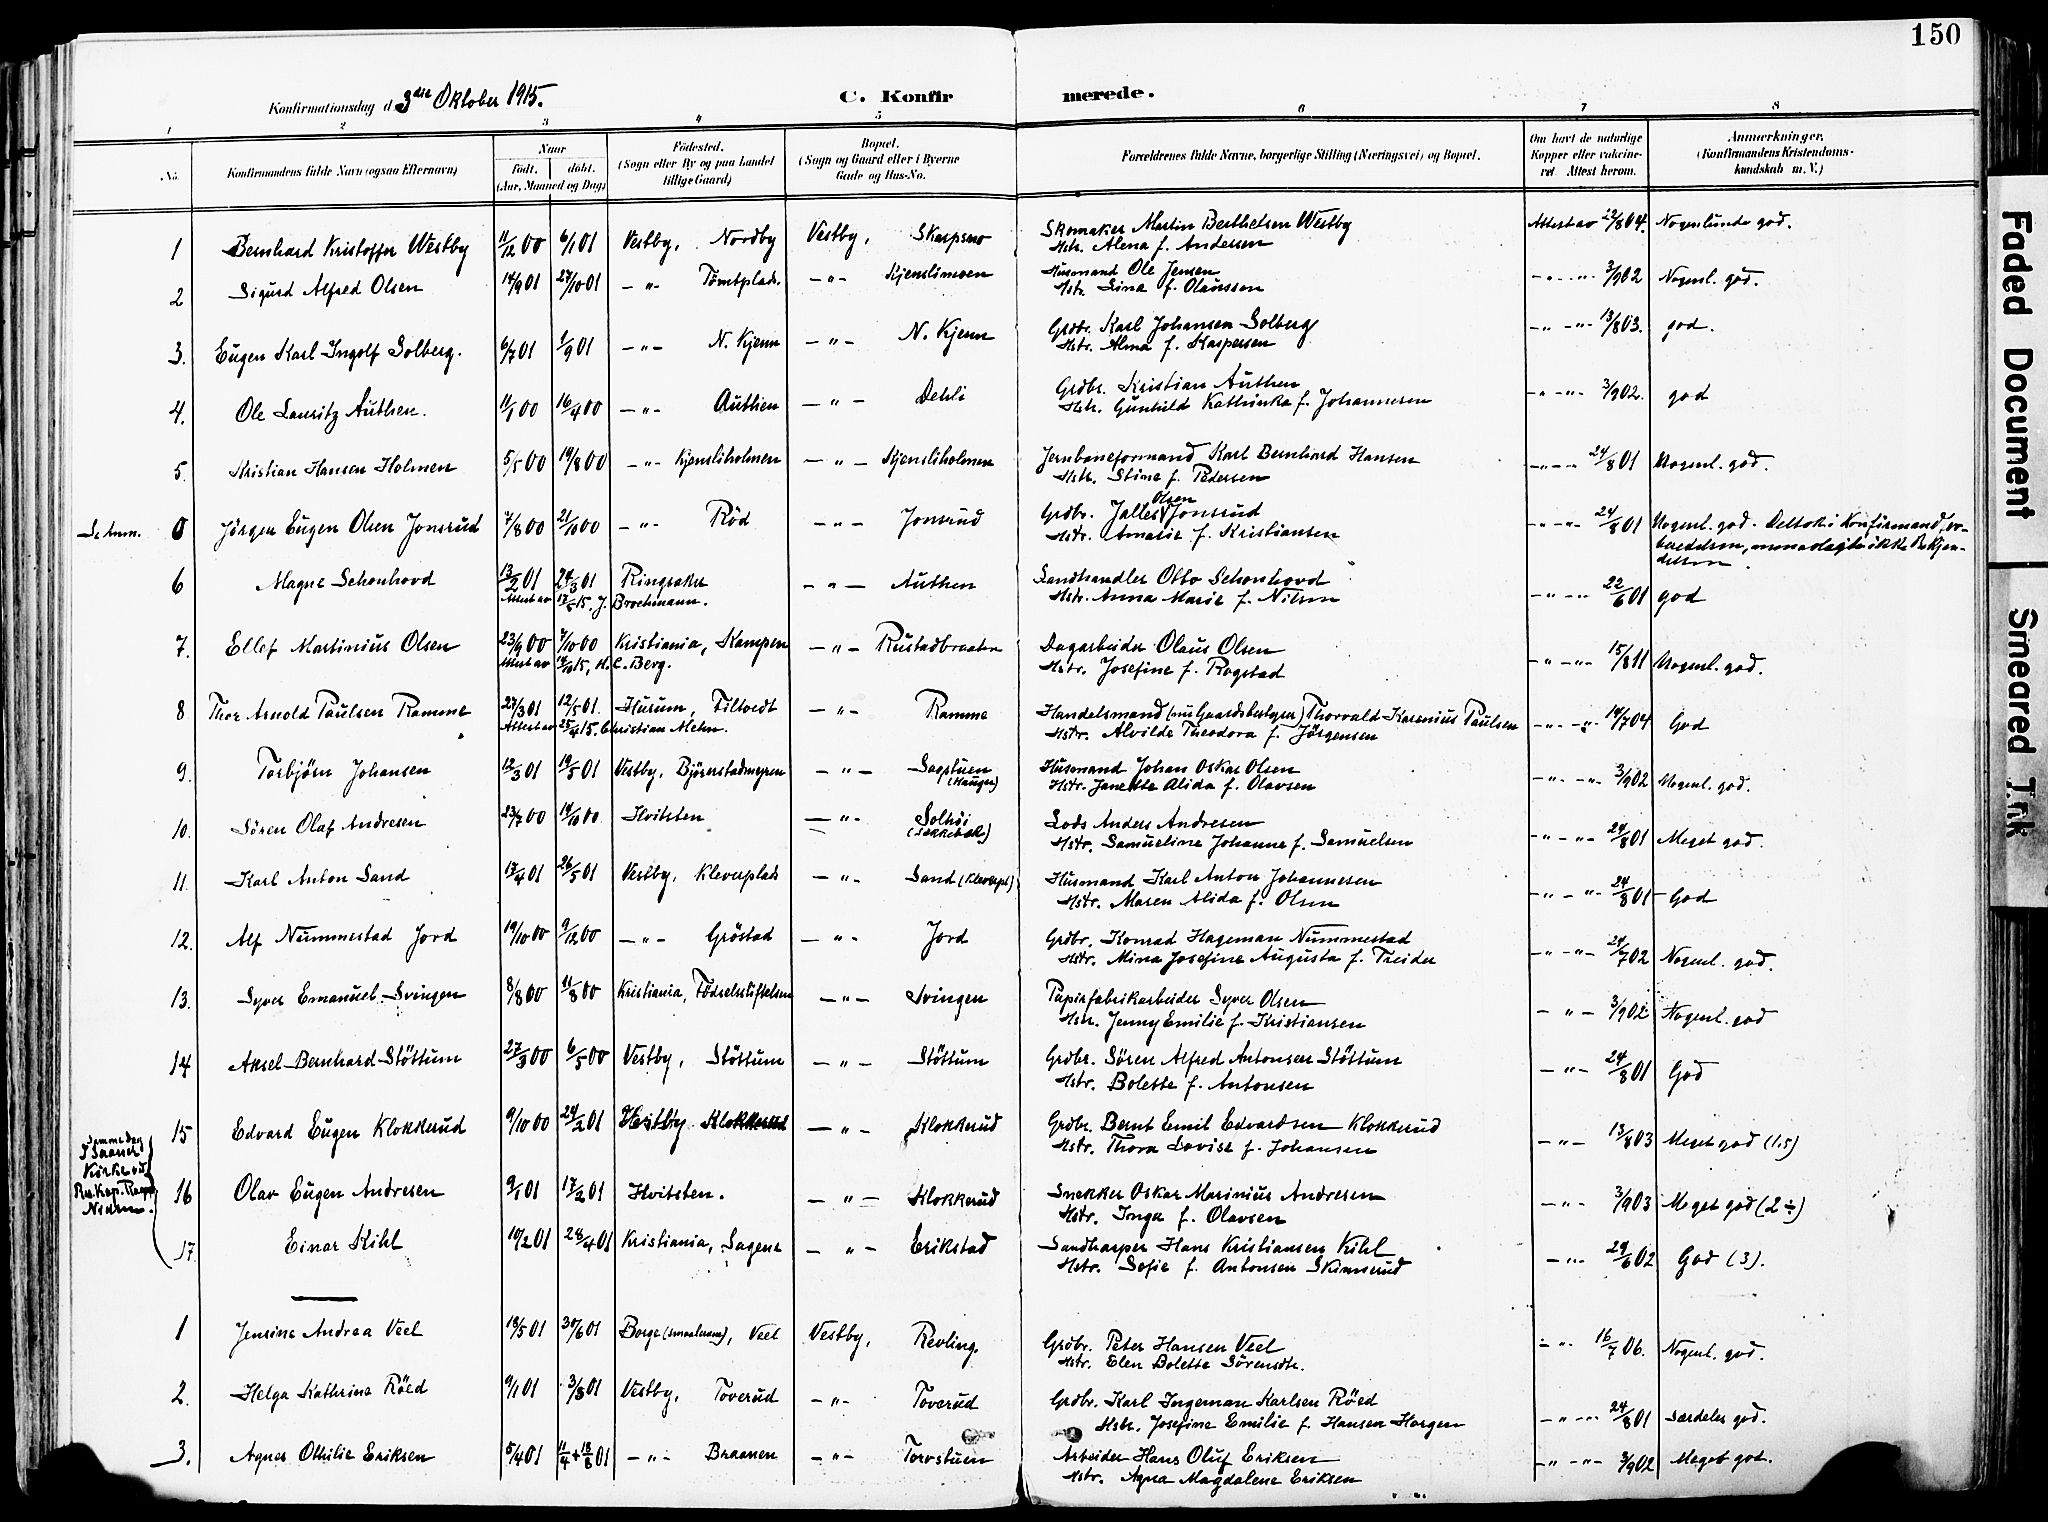 150
Konfirmationsdag d. 3die Oktober 1915.
C. Konfirmerede.
1 2 3 4 5 6 7 8
No. Konfirmandens fulde Navn (ogsaa Efternavn) Naar født. døbt. (Aar, Maaned og Dag) Fødested. (Sogn eller By og paa Landet tillige Gaard) Bopæl. (Sogn og Gaard eller i Byerne Gade og Hus-No. Forældrenes fulde Navne, borgerlige Stilling (Næringsvei) og Bopæl. Om havt de naturlige Kopper eller vaccineret. Attest herom. Anmerkninger. (Konfirmandens Kristendomskundskab m. V.)
1 Bernhard Kristoffer Westby 11/12 00 6/1 01 Vestby, Nordby Vestby, Skarpsno Skomaker Martin Berthelsen Westby Attest av 22/8 04. Nogenlunde god.
Hstr. Alena f. Andersen
2 Sigurd Alfred Olsen 14/9 01 27/10 01 —"— Tomtplads. —"— Kjenslimoen Husmand Ole Jensen —"— "— 3/9 02 Nogenl. god.
Hstr. Lina f. Olaussen
3. Eugen Karl Ingolf Solberg. 6/7 01 1/9 01 —"— N. Kjenn —"— N. Kjenn Grdbr. Karl Johansen Solberg —"— "— 13/8 03. god.
Hstr. Alma f. Kaspersen
4. Ole Lauritz Authen. 11/1 00 16/4 00 —"— Authen —"— Dehli Grdbr. Kristian Authen —"— "— 3/9 02. god
Hstr. Gunhild Kathinka f. Johannesen
5. Kristian Hansen Holmen 5/5 00 19/8 00 —"— Kjensliholmen —"— Kjensliholmen Jernbaneformand Karl Bernhard Hansen —"— "— 24/8 01 Nogenl. god.
Hstr. Stine f. Pedersen
Se Anm. 0 Jörgen Eugen Olsen Jonsrud 7/8 00 21/10 00 —"— Röd —"— Jonsrud Grdbr. Jalles Olsen Jonsrud —"— "— 24/8 01 Nogenl. god. Deltok i Konfirmandfor-
Hstr. Amalie f. Kristiansen beredelsen, men avlagte ikke Bekjen-
delsen.
6 Magne Schonhovd 13/2 01 24/3 01 Ringsaker —"— Authen Landhandler Otto Schonhovd —"— "— 22/6 01 god
Attest av 17/5 15. J. Brochmann. Hstr. Anna Marie f. Nilsen
7. Ellef Martinius Olsen 23/9 00 7/10 00 Kristiania, Kampen —"— Rustadbraaten Dagarbeider Olaus Olsen —"— "— 15/8 11 Nogenl. god.
Attest av 15, H. C. Berg. Hstr. Josefine f. Rogstad
8 Thor Arnold Paulsen Ramme 27/3 01 12/5 01 Hurum, Filtvedt —"— Ramme Handelsmand (nu Gaardsbestyrer) Thorvald Karenius Paulsen —"— "— 19/7 04 God
Attest av 25/4 15. Christian Mehn. Hstr. Alvilde Theodora f. Jörgensen
9. Torbjörn Johansen 12/3 01 19/5 01 Vestby, Bjørerstadmyren —"— Sagstuen (Haugen) Husmand Johan Oskar Olsen —"— "— 3/9 02 Nogenl. god.
Hstr. Janette Alida f. Olavsen
10. Sören Olaf Andresen 23/7 00 14/10 00 Hvitsten —"— Solhöi Lods Anders Andresen —"— "— 24/8 01 Meget god.
Hstr. Samueline Johanne f. Samuelsen
11. Karl Anton Sand 17/4 01 26/5 01 Vestby, Kleverplads —"— Sand (Kleverpl.) Husmand Karl Anton Johannesen —"— "— 24/8 01 God
Hstr. Maren Alida f. Olsen
12. Alf Nummestad Jord 19/10 00 9/12 00 —"— Gröstad —"— Jord Grdbr. Konrad Hageman Nummestad —"— "— 24/7 02 Nogenl. god.
Hstr. Mina Josefine Augusta f. Treider
13. Syver Emanuel Svingen 8/8 00 11/8 00 Kristiania, Födselsstiftelsen —"— Svingen Papirfabrikarbeider Syver Olsen —"— 3/9 02 Nogenl. god
Hstr. Jenny Emilie f. Kristiansen
14 Aksel Bernhard Stöttum 27/3 00 6/5 00 Vestby, Stöttum —"— Stöttum Grdbr. Sören Alfred Antonsen Stöttum —"— 24/8 01 God
Hstr. Bolette f. Antonsen
15 Edvard Eugen Klokkerud 9/10 00 24/2 01 Vestby Klokkerud —"— Klokkerud Grdbr. Bernt Emil Edvardsen Klokkerud —"— 13/8 03 Meget god (1.5)
Hstr. Thora Lovise f. Johansen
Samme dag i Saaner Kirke ved Res. Kap.
16 Olav Eugen Andresen 9/1 01 17/2 01 Hvitsten. —"— Klokkerud Snekker Oskar Marinius Andresen —"— 3/9 03 Meget god (2÷)
Hstr. Inga f. Olavsen
17. Einar Kihl 10/2 01 28/4 01 Kristiania, Sagene —"— Erikstad Sandharper Hans Kristiansen Kihl —"— 29/6 02 God (3).
Hstr. Sofie f. Antonsen Skinnerud
1 Jensine Andrea Veel 18/5 01 30/6 01 Borge (Smaalenene), Veel Vestby, Revling. Grdbr. Peter Hansen Veel —"— 16/7 06. Nogenl. god.
Hstr. Elen Bolette Sörensdtr.
2. Helga Kathrine Röed 9/1 01 3/3 01 Vestby, Toverud —"— Toverud Grdbr. Karl Ingeman Karlsen Röed —"— "— 24/8 01 Særdeles god.
Hstr. Josefine Emilie f. Hansen Horgen
3. Agnes Othilie Eriksen 5/4 01 11/4 + 18/8 01 —"— Braanen —"— Torvstuen Arbeider Hans Oluf Eriksen —"— "— 3/9 02 Meget god.
Hstr. Agna Magdalene Eriksen
Faded Document
Smeared Ink